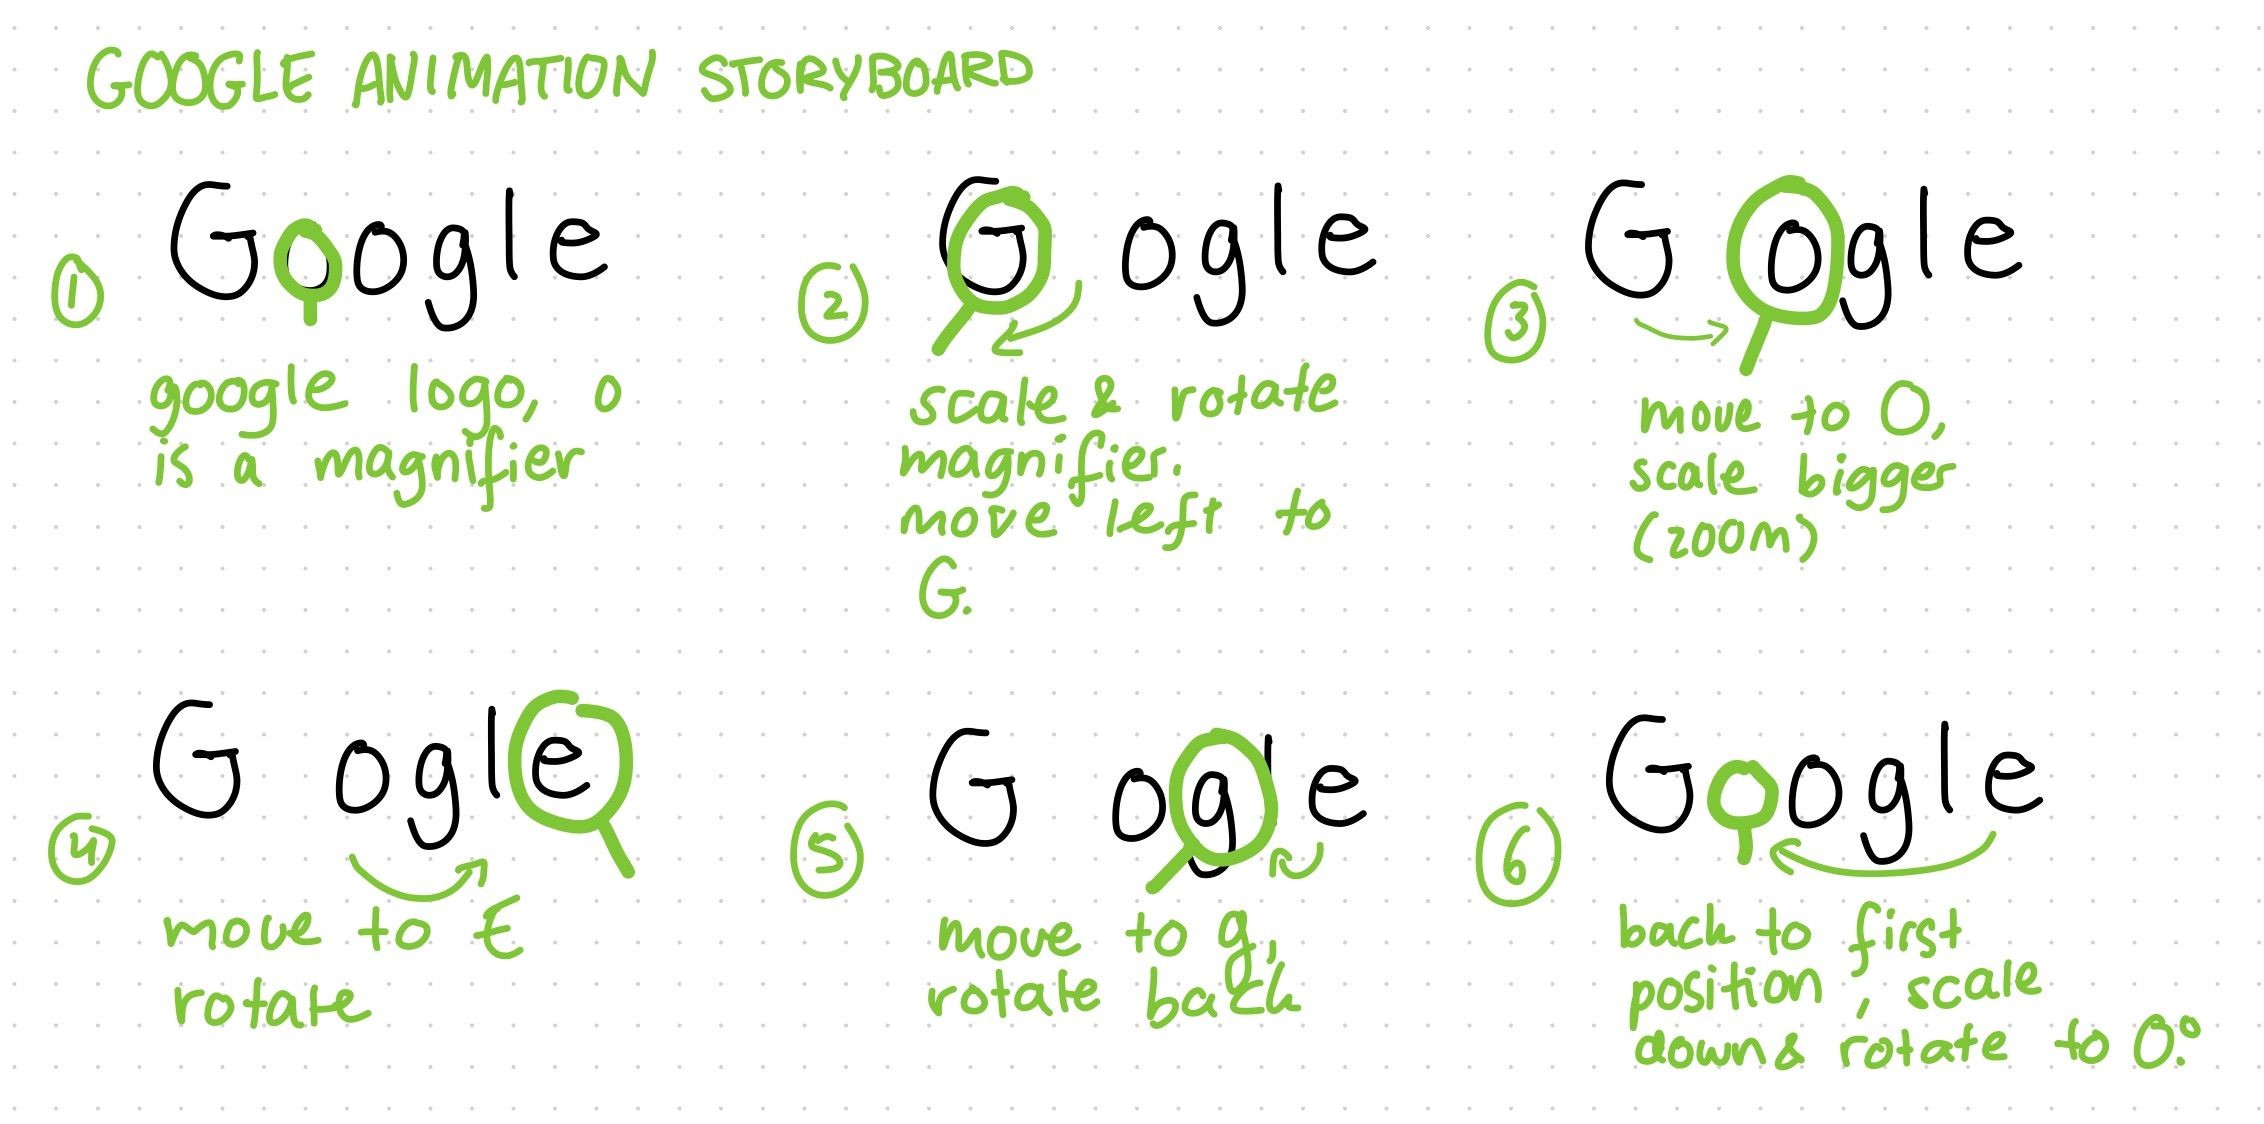 GOOGLE ANIMATION STORYBOARD
1
Google
google logo, o
is a magnifier
2
G ogle
scale & rotate
magnifier.
move left to
G.
3
G ogle
move to O,
scale bigger
(zoom)
4
G ogle
move to E
rotate
5
G ogle
move to g,
rotate back
6
Google
back to first
position, scale
down & rotate to 0°.